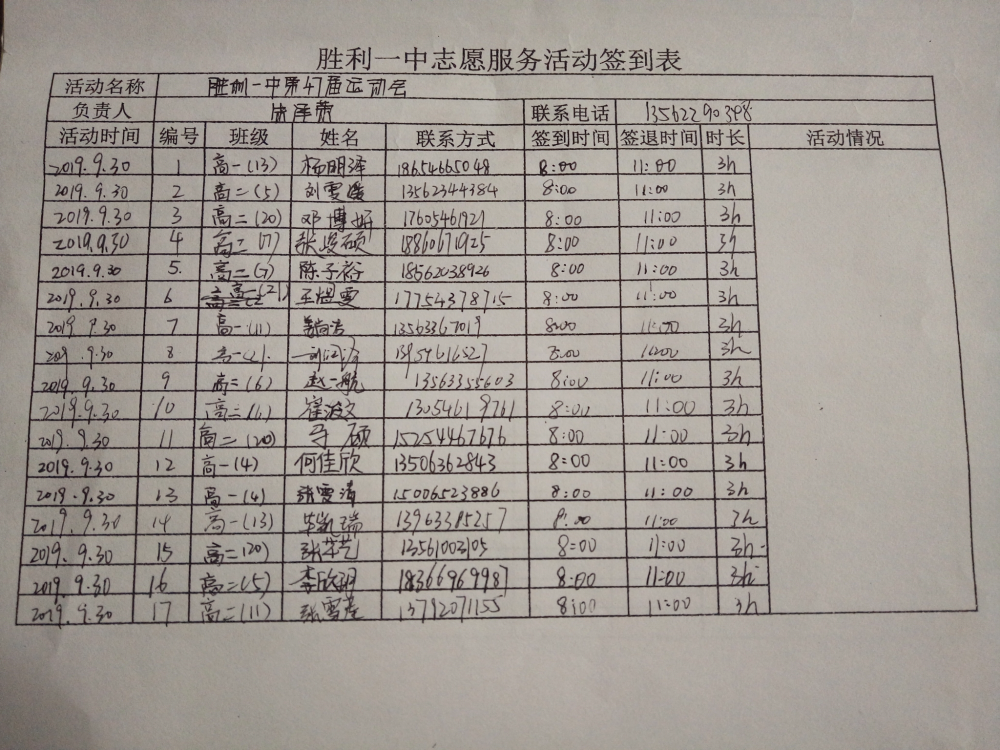 胜利一中志愿服务活动签到表
活动名称 胜利一中第47届运动会
负责人 联系电话 13562290398
活动时间 编号 班级 姓名 联系方式 签到时间 签退时间 时长 活动情况
2019.9.30 1 高一(13) 杨明泽 18654665048 8:00 11:00 3h
2019.9.30 2 高二(5) 刘雯媛 13562344384 8:00 11:00 3h
2019.9.30 3 高二(20) 邓博妍 17605461921 8:00 11:00 3h
2019.9.30 4 高二(7) 18860671925 8:00 11:00 3h
2019.9.30 5. 高二(7) 陈子裕 18562038926 8:00 11:00 3h
2019.9.30 6 高二(21) 王煜雯 17754378715 8:00 11:00 3h
2019 9.30 7 高一(11) 13563367019 8:00 11:00 3h
2019.9.30 8 高一(2). 3h
2019.9.30 9 高二(6) 赵一航 13563355603 8:00 11:00 3h
2019.9.30 10 高二(6) 崔波文 13054619761 8:00 11:00 3h
2019.9.30 11 高二(20) 15254467676 8:00 11:00 3h
2019.9.30 12 高一(4) 何佳欣 13506362843 8:00 11:00 3h
2019.9.30 13 高一(4) 张雯清 15006523886 8:00 11:00 3h
2019.9.30 14 高一(13) 13963385257 8:00 11:00 3h
2019.9.30 15 高二(20) 13561003105 8:00 11:00 3h
2019.9.30 16 高二(5) 李欣玥 18366969987 8:00 11:00 3h
2019.9.30 17 高二(11) 13792071155 8:00 11:00 3h